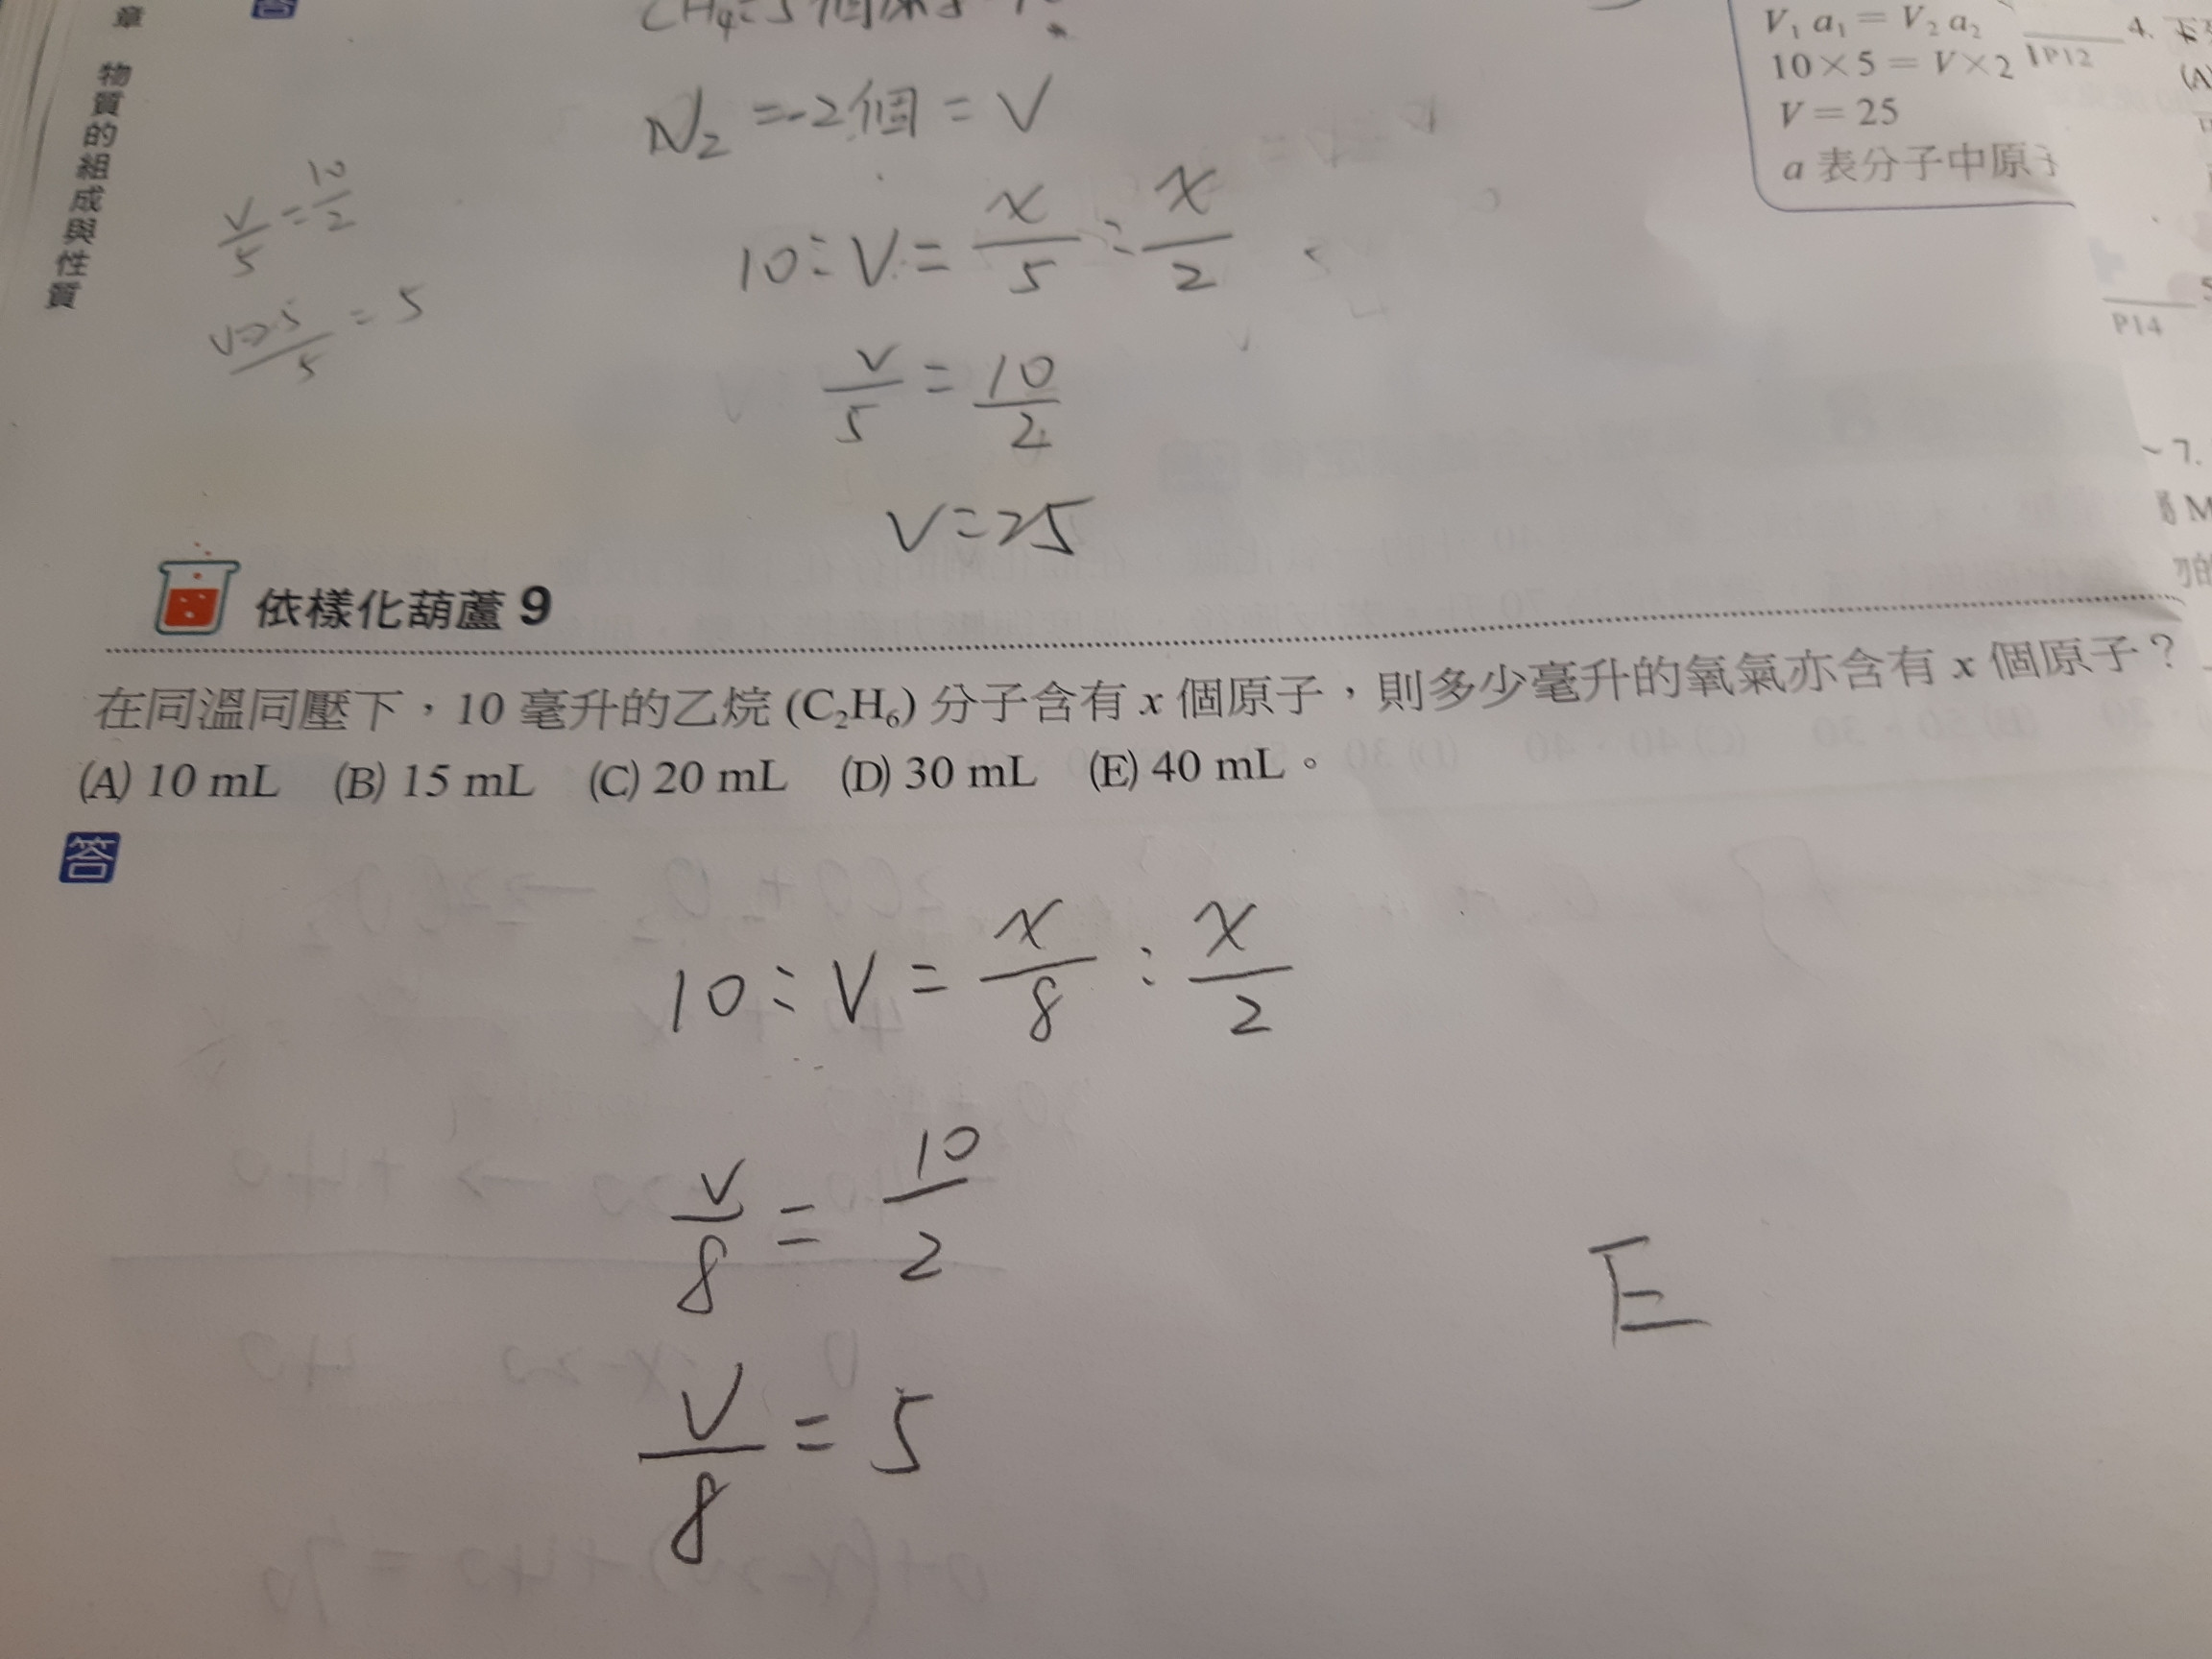 章 物質的組成與性質
答
N₂ = 2個 = V
10 : V = x/5 : x/2
V/5 = 10/2
V = 25
V/5 = 10/2
= 5
V₁ a₁ = V₂ a₂
10×5 = V×2
V = 25
a 表分子中原
P12
4.
(A
P14
5
7.
M
的
依樣化葫蘆 9
在同溫同壓下，10 毫升的乙烷 (C₂H₆) 分子含有 x 個原子，則多少毫升的氧氣亦含有 x 個原子？
(A) 10 mL (B) 15 mL (C) 20 mL (D) 30 mL (E) 40 mL。
答
10 : V = x/8 : x/2
V/8 = 10/2
V/8 = 5
E